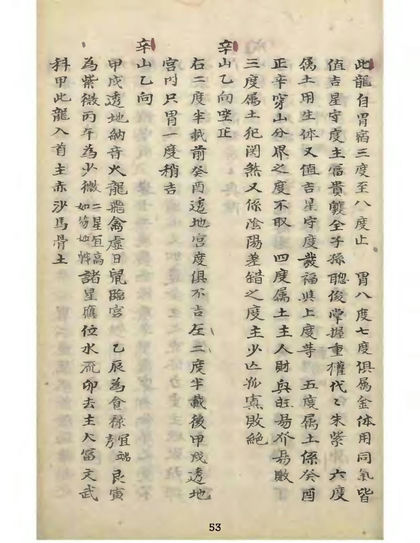 此龍自胃宿三度至八度止　胃八度七度俱属金体用同氣皆
值吉星守度主富貴雙全子孫聰俊掌握重權代々朱紫　六度
属土用生体又值吉星守度發福與上度等　五度属土係癸酉
正辛穿山分界之度不取　四度属土主人財與旺易介易敗
三度属土犯関煞又係陰陽差錯之度主少亡孤寡敗絶
辛山乙向坐正
右二度半載前癸酉透地宮度俱不吉在二度半載後甲戌透地
宮內只胃一度稍吉
辛山乙向
甲戌透地納音火龍飛禽虛日鼠臨宮　乙辰為食祿 艮寅
為紫微丙午為少微 諸星應位水流卯去主大富文武
科甲此龍入首主赤沙馬骨土
53